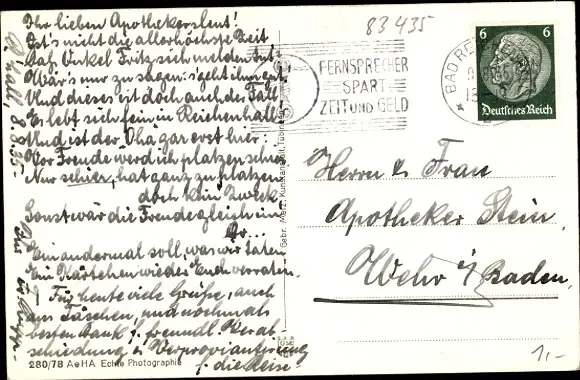 Ihr lieben Apothekersleut!
Ist's nicht die allerhöchste Zeit
Daß Onkel Fritz sich melden tut
Wär's nur zu sagen: 's geht ihm gut.
Und dieses ist doch auch der Fall
Er lebt sich fein in Reichenhall
Und ist der Oha gar erst hier:
Vor Freude werd ich platzen schier
Nur schier, hat ganz zu platzen
doch kein Zweck
Sonst wär die Freude gleich im
Dr...
Ein andermal soll, was wir taten
Ein Kärtchen wieder Euch verraten.
Für heute viele Grüße, auch
aus Taschen, und nochmals
besten Dank f. freundl. Verab-
schiedung u. Verproviantierung
f. die Reise!
R'hall, 8.8.35.
280/78 AeHA Echte Photographie
Gebr. Metz, Kunstanstalt, Tübingen
83435
FERNSPRECHER
SPART
ZEIT UND GELD
BAD REI
6 6
Deutsches Reich
Herrn u. Frau
Apotheker Stein,
Wehr i/Baden.
1,-